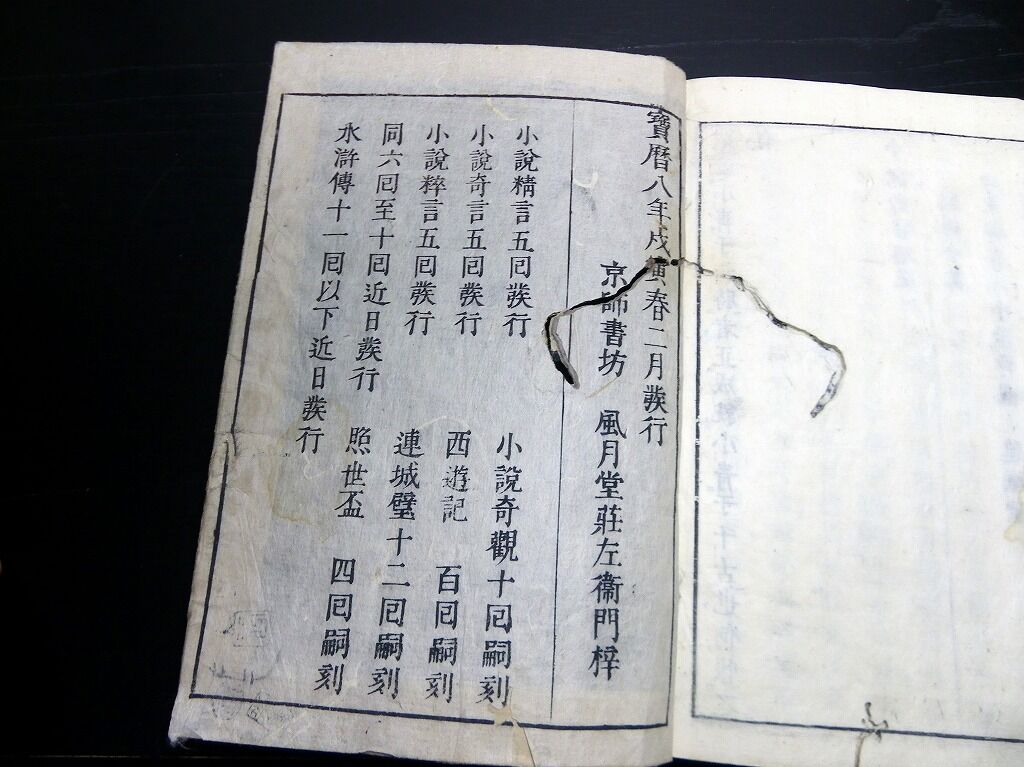 寶曆八年戊寅春二月發行
京師書坊　風月堂莊左衞門梓
小說精言五囘發行
小說奇言五囘發行
小說粹言五囘發行
同六囘至十囘近日發行
水滸傳十一囘以下近日發行
小說奇觀十囘嗣刻
西遊記　百囘嗣刻
連城璧十二囘嗣刻
照世盃　四囘嗣刻